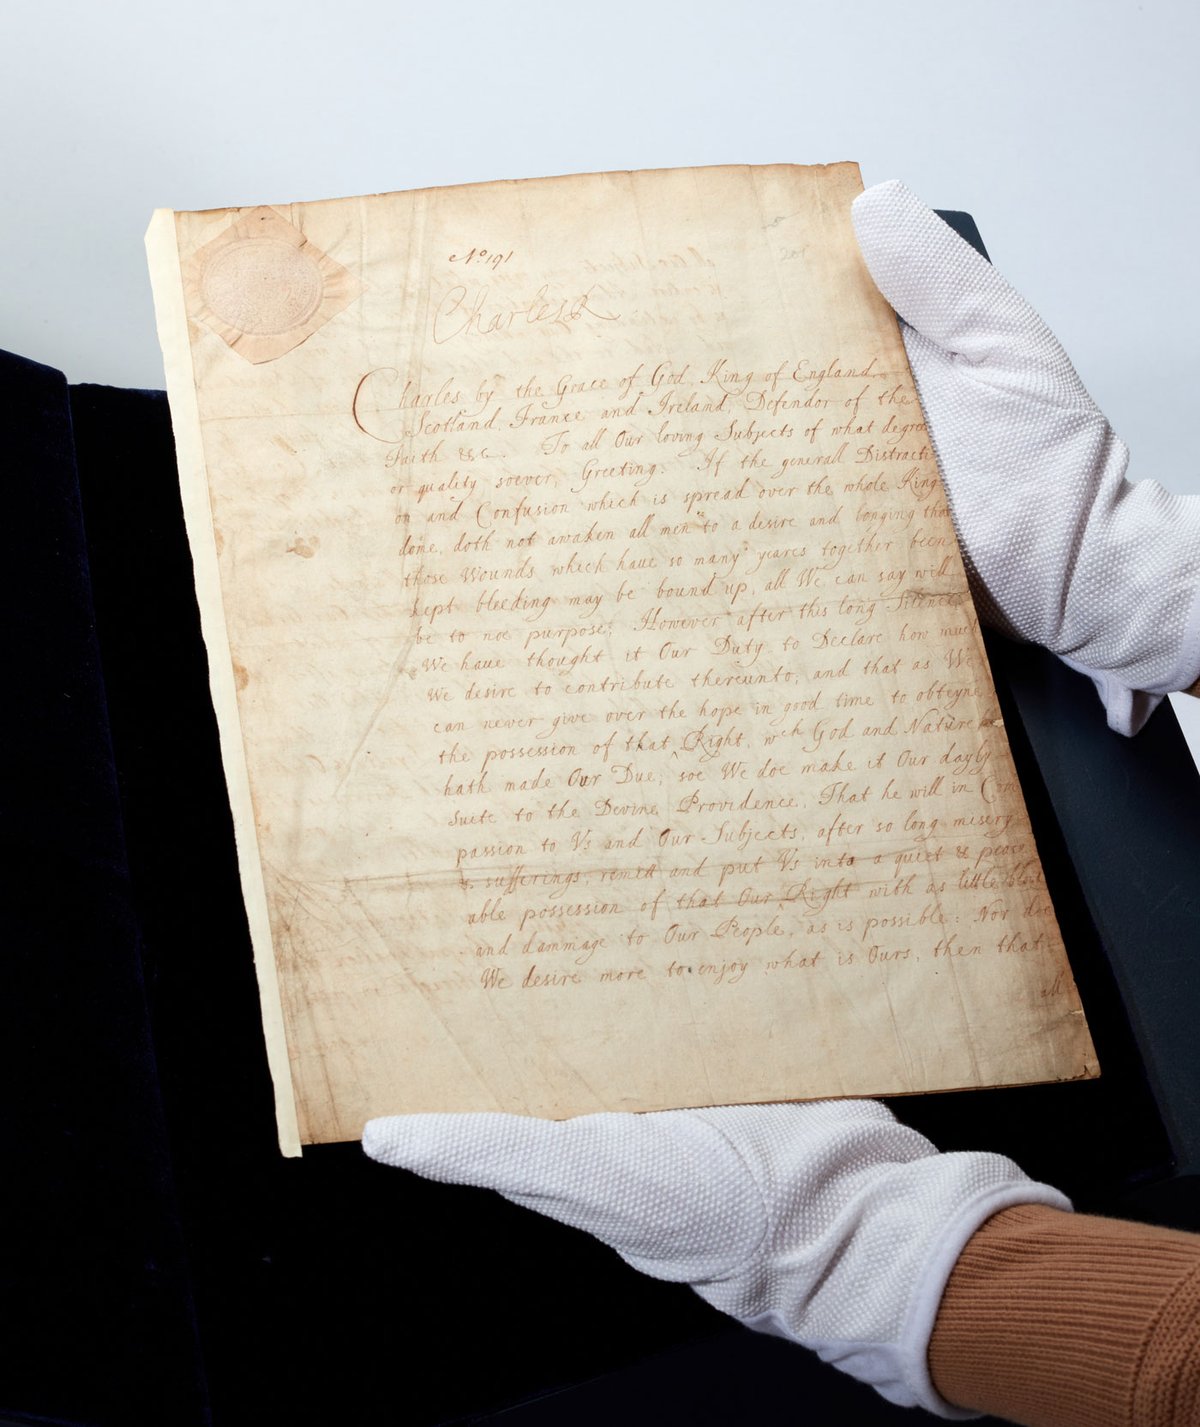 No 191
Charles R
Charles by the Grace of God, King of England,
Scotland, France and Ireland, Defendor of the
Faith &c. To all Our loving Subjects of what degree
or quality soever, Greeting. If the generall Distracti
on and Confusion which is spread over the whole King
dome, doth not awaken all men to a desire and longing that
those Wounds which haue so many yeares together been
kept bleeding may be bound up, all We can say will
be to noe purpose; However after this long Silence
We haue thought it Our Duty to Declare how much
We desire to contribute thereunto; and that as We
can never give over the hope in good time to obteyne
the possession of that Right, wch God and Nature
hath made Our Due; soe We doe make it Our dayly
Suite to the Devine Providence, That he will in Com
passion to Vs and Our Subjects, after so long misery
& sufferings, remitt and put Vs into a quiet & peace
able possession of that Our Right with as little blood
and dammage to Our People, as is possible: Nor doe
We desire more to enjoy what is Ours, then that
all